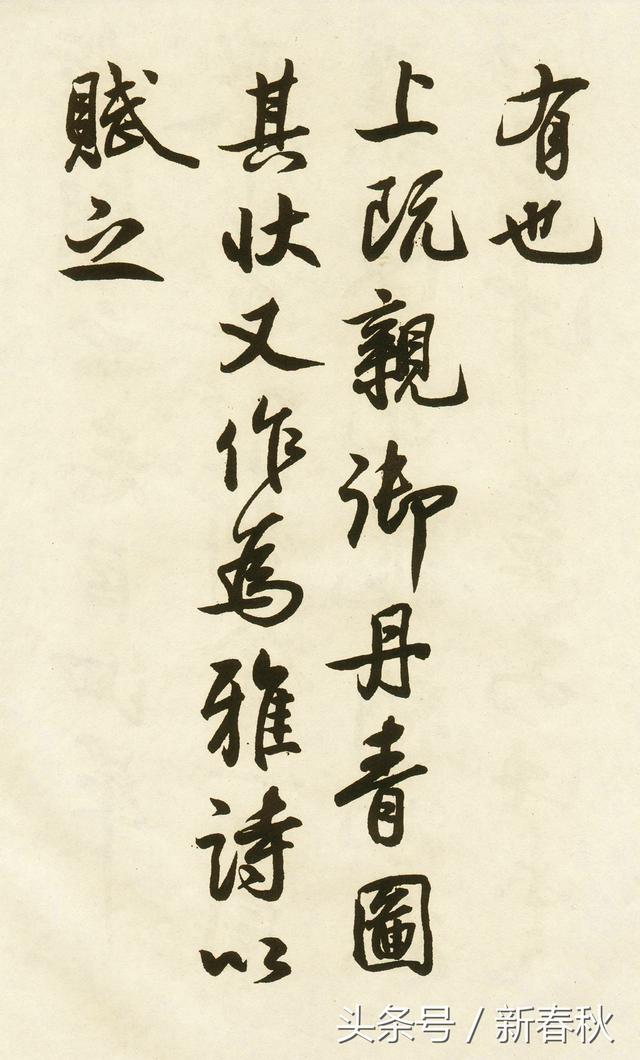 有也
上既親御丹青圖
其状又作為雅詩以
賦之
头条号 / 新春秋